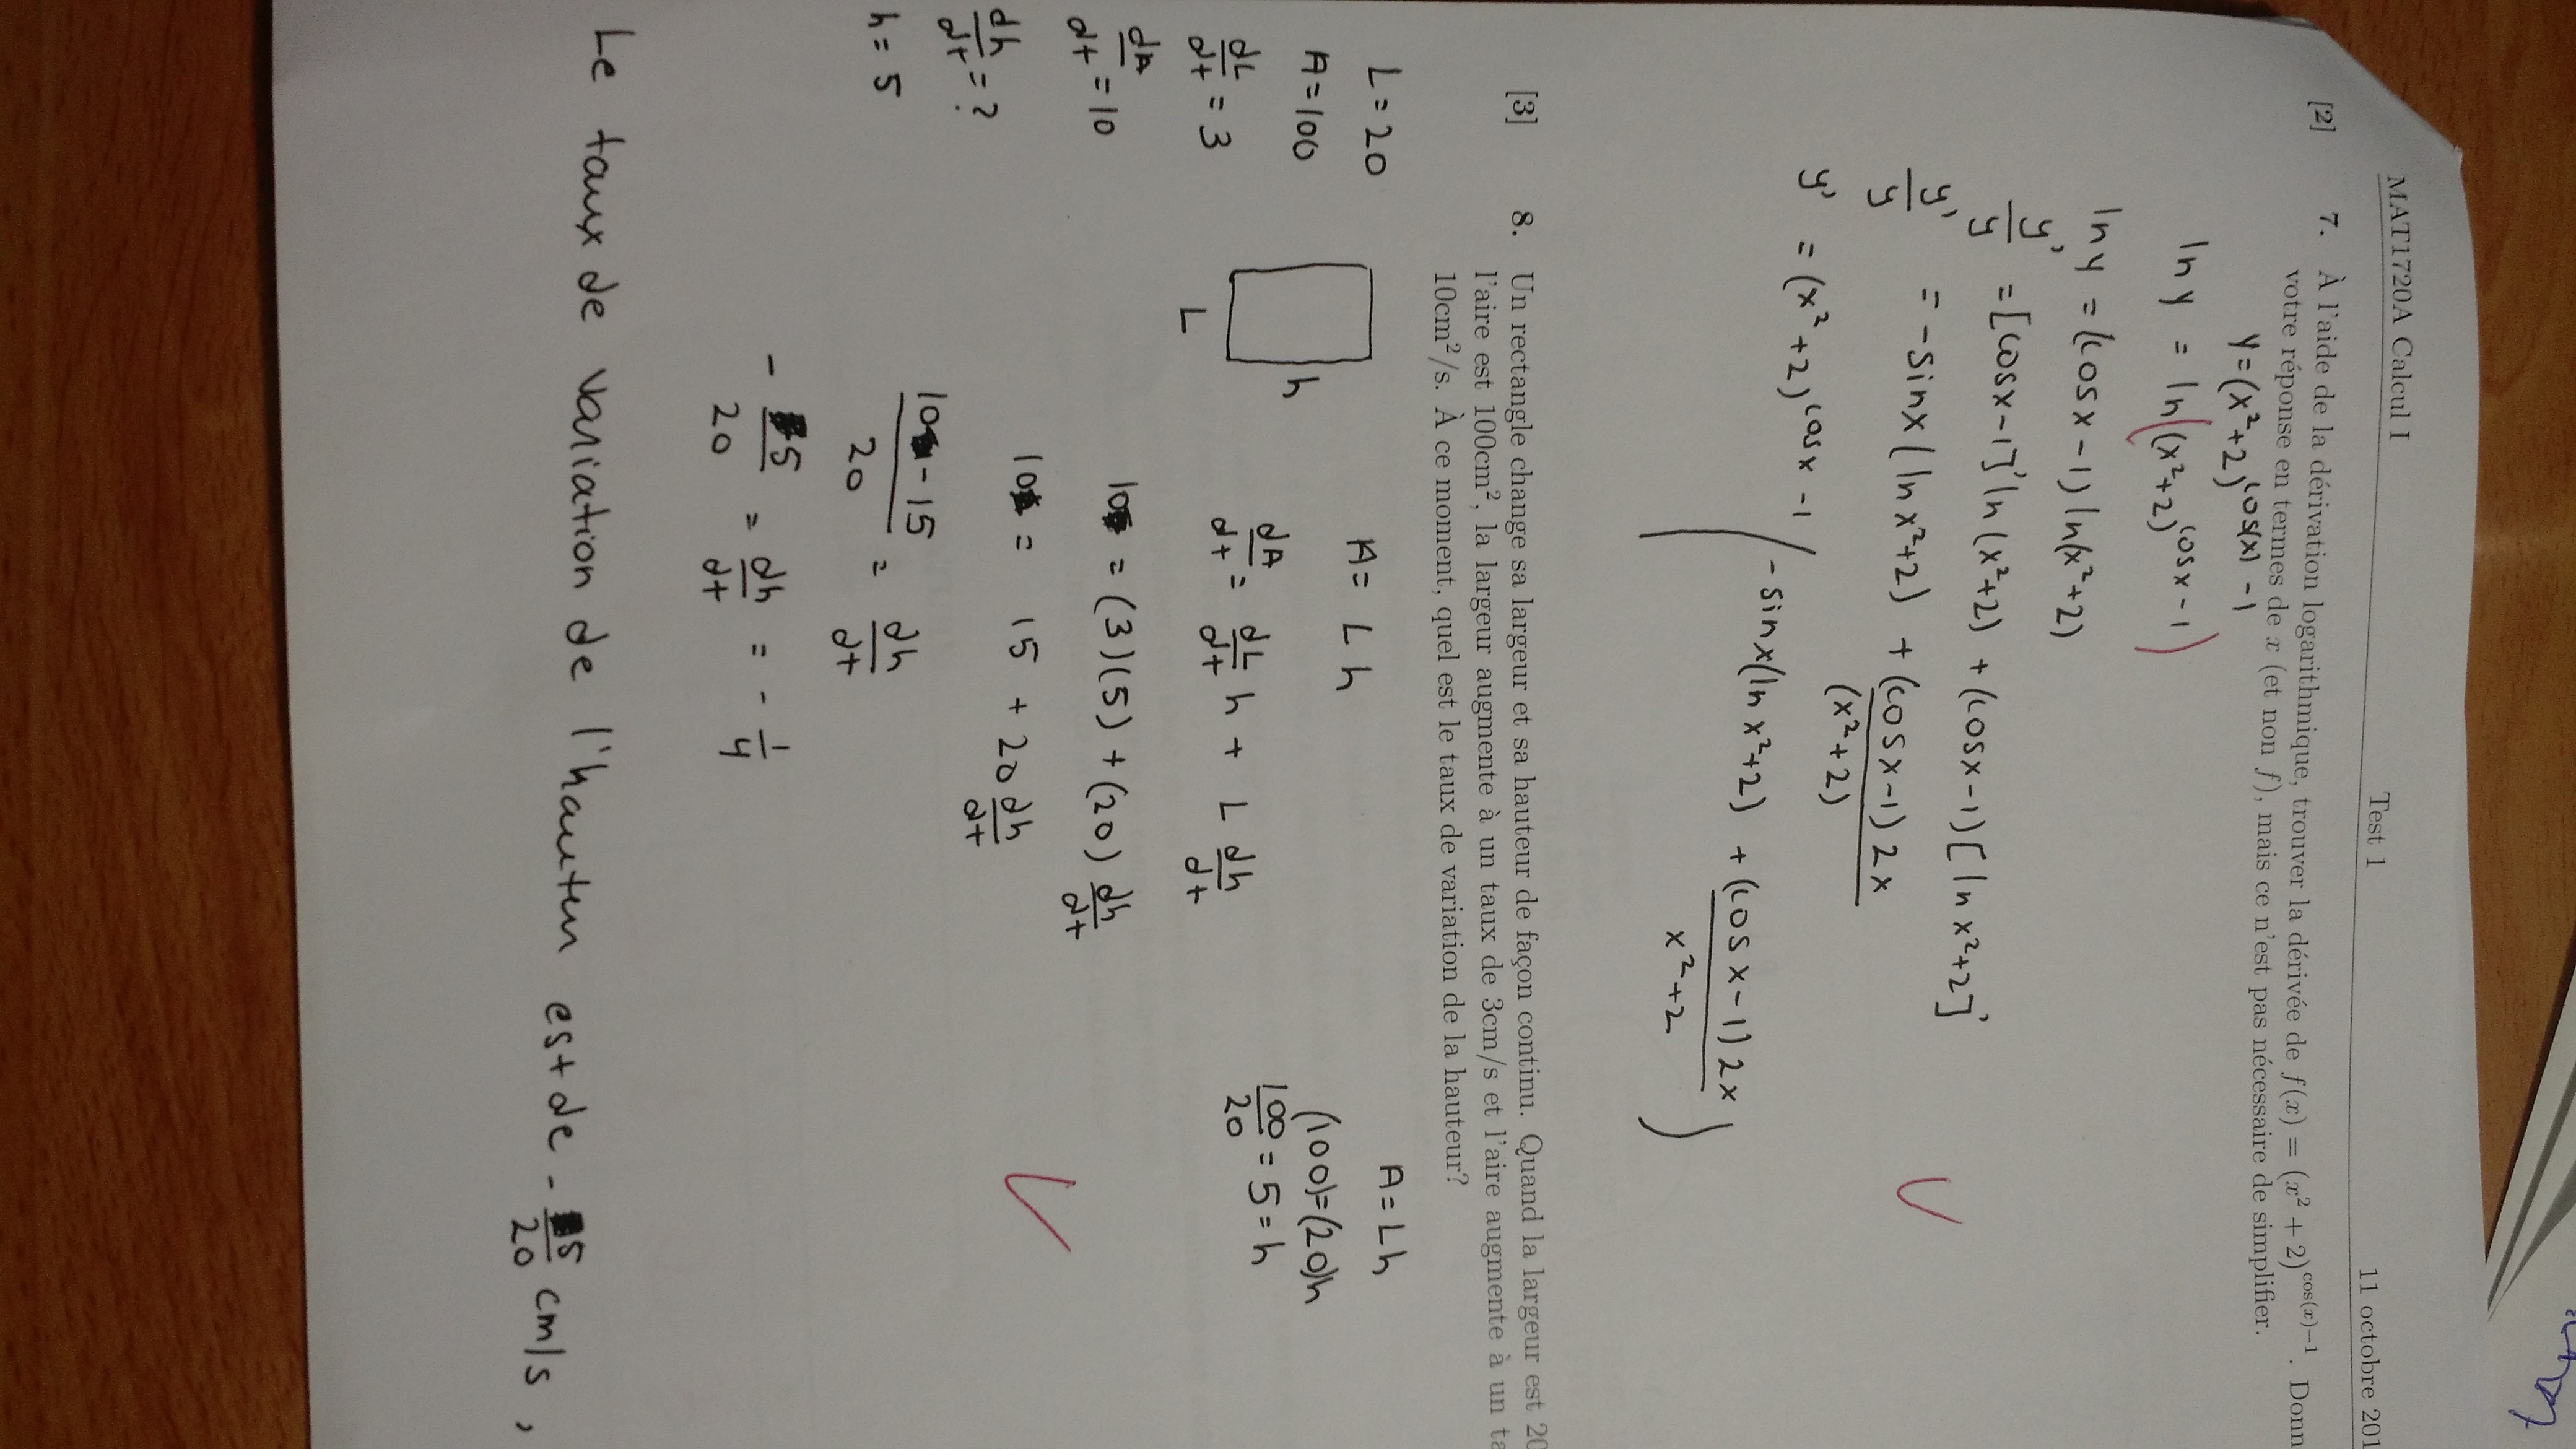 MAT1720A Calcul I Test 1 11 octobre 201
[2] 7. À l'aide de la dérivation logarithmique, trouver la dérivée de f(x) = (x² + 2)^{cos(x)−1}. Donn
votre réponse en termes de x (et non f), mais ce n'est pas nécessaire de simplifier.
y = (x²+2)^{cos(x)-1}
ln y = ln((x²+2)^{cosx-1})
ln y = (cosx-1) ln(x²+2)
y'/y = [cosx-1]' ln(x²+2) + (cosx-1)[lnx²+2]'
y'/y = -sinx(lnx²+2) + (cosx-1)2x/(x²+2)
y' = (x²+2)^{cosx-1} (-sinx(lnx²+2) + (cosx-1)2x/x²+2)
[3] 8. Un rectangle change sa largeur et sa hauteur de façon continu. Quand la largeur est 20
l'aire est 100cm², la largeur augmente à un taux de 3cm/s et l'aire augmente à un ta
10cm²/s. À ce moment, quel est le taux de variation de la hauteur?
L=20
A=100
dL/dt = 3
dA/dt = 10
dh/dt = ?
h=5
h
L
A= Lh
dA/dt = dL/dt h + L dh/dt
10 = (3)(5) + (20) dh/dt
10 = 15 + 20 dh/dt
10-15/20 = dh/dt
-5/20 = dh/dt = -1/4
A=Lh
(100)=(20)h
100/20 = 5 = h
Le taux de variation de l'hauteur est de -5/20 cm/s,